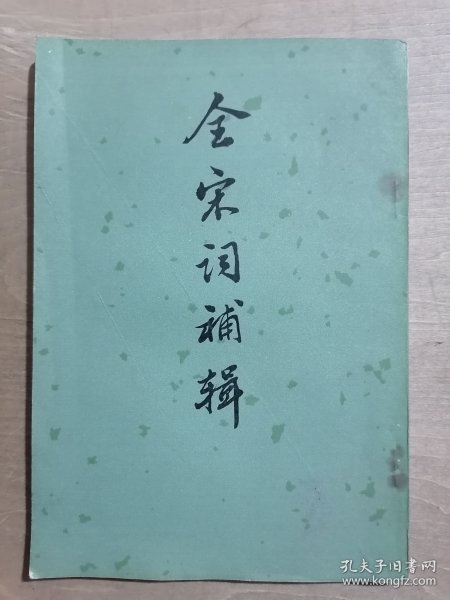 全宋词補辑
孔夫子旧书网
www.kongfz.com